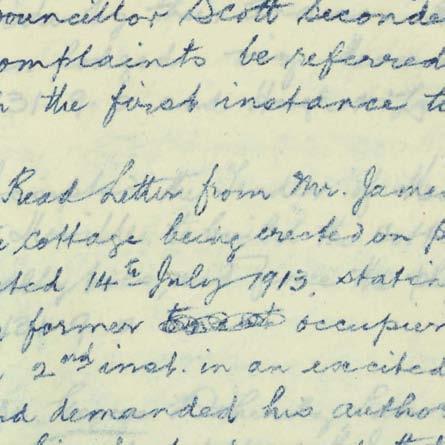 ouncillor Scott seconde
omplaints be referred
n the first instance t
Read Letter from Mr. Jame
e cottage being erected on p
ated 14th July 1913. statin
former occupier
2nd inst. in an excited
nd demanded his author